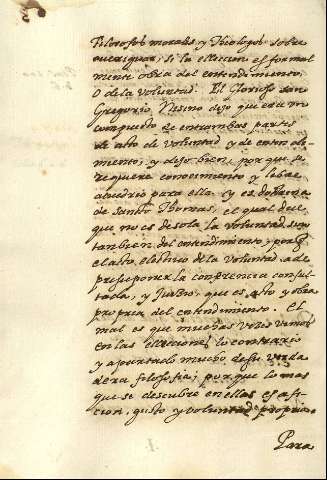 Filosofos morales, y Theologos sobre
averiguar, si la eleccion es formal
mente obra del entendimiento,
o de la voluntad. El Glorioso san
Gregorio Niseno dejo que era un
compuesto de entrambas partes
de acto de voluntad y de enten di
miento, y dijo bien, por que se
requiere conocimiento y
albedrio para ella, y es dotrina
de santo Thomas, el qual dice
que no es de sola la voluntad, sino
tanbien del entendimiento, porq
el acto electivo de la voluntad a de
presuponer la conferencia consul
tada, y juicio, que es acto y obra
propria del entendimiento. el
mal es que muchas vezes vemos
en las elecciones lo contrario
y apartado mucho de su verda
dera filosofia; por que lo mas
que se descubre en ellas es afi
cion, gusto y voluntad propria.
Para